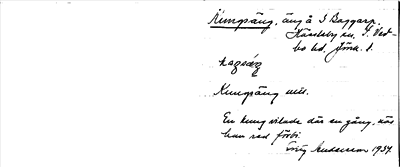 Kungsäng, äng å S Baggarp.
Hässleby sn. S. Ved-
bo hd. Jönk. l.
Kungsäng uttl.
En kung vilade där en gång, när
han red förbi.
Fritz Andersson 1934.